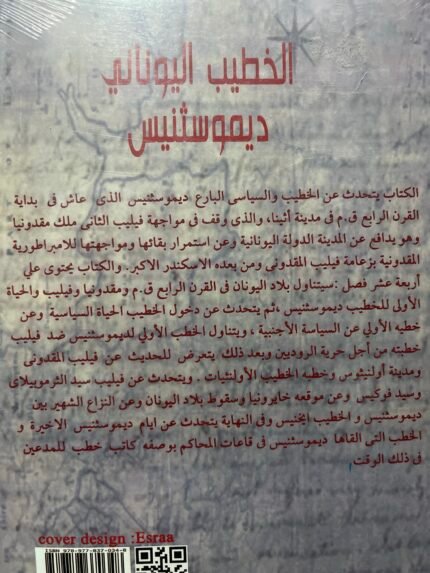 الخطيب اليوناني
ديموسثنيس
الكتاب يتحدث عن الخطيب والسياسى البارع ديموسثنيس الذى عاش فى بداية
القرن الرابع ق.م فى مدينة أثينا، والذى وقف فى مواجهة فيليب الثانى ملك مقدونيا
وهو يدافع عن المدينة الدولة اليونانية وعن استمرار بقائها ومواجهتها للامبراطورية
المقدونية بزعامة فيليب المقدونى ومن بعده الاسكندر الاكبر. والكتاب يحتوى علي
أربعة عشر فصل :سيتناول بلاد اليونان فى القرن الرابع ق.م ومقدونيا وفيليب والحياة
الأولى للخطيب ديموسثنيس ،ثم يتحدث عن دخول الخطيب الحياة السياسية وعن
خطبه الأولي عن السياسة الأجنبية ، ويتناول الخطب الأولي لديموسثنيس ضد فيليب
خطبته من أجل حرية الروديين وبعد ذلك يتعرض للحديث عن فيليب المقدونى
ومدينة أولنيثوس وخطبه الخطيب الأولنثيات . ويتحدث عن فيليب سيد الثرموبيلاى
وسيد فوكيس وعن موقعه خايرونيا وسقوط بلاد اليونان وعن النزاع الشهير بين
ديموسثنيس و الخطيب ايخنيس وفى النهاية يتحدث عن ايام ديموسثنيس الاخيرة و
الخطب التى القاها ديموسثنيس فى قاعات المحاكم بوصفه كاتب خطب للمدعين
فى ذلك الوقت
cover design :Esraa
ISBN 978-977-837-034-8